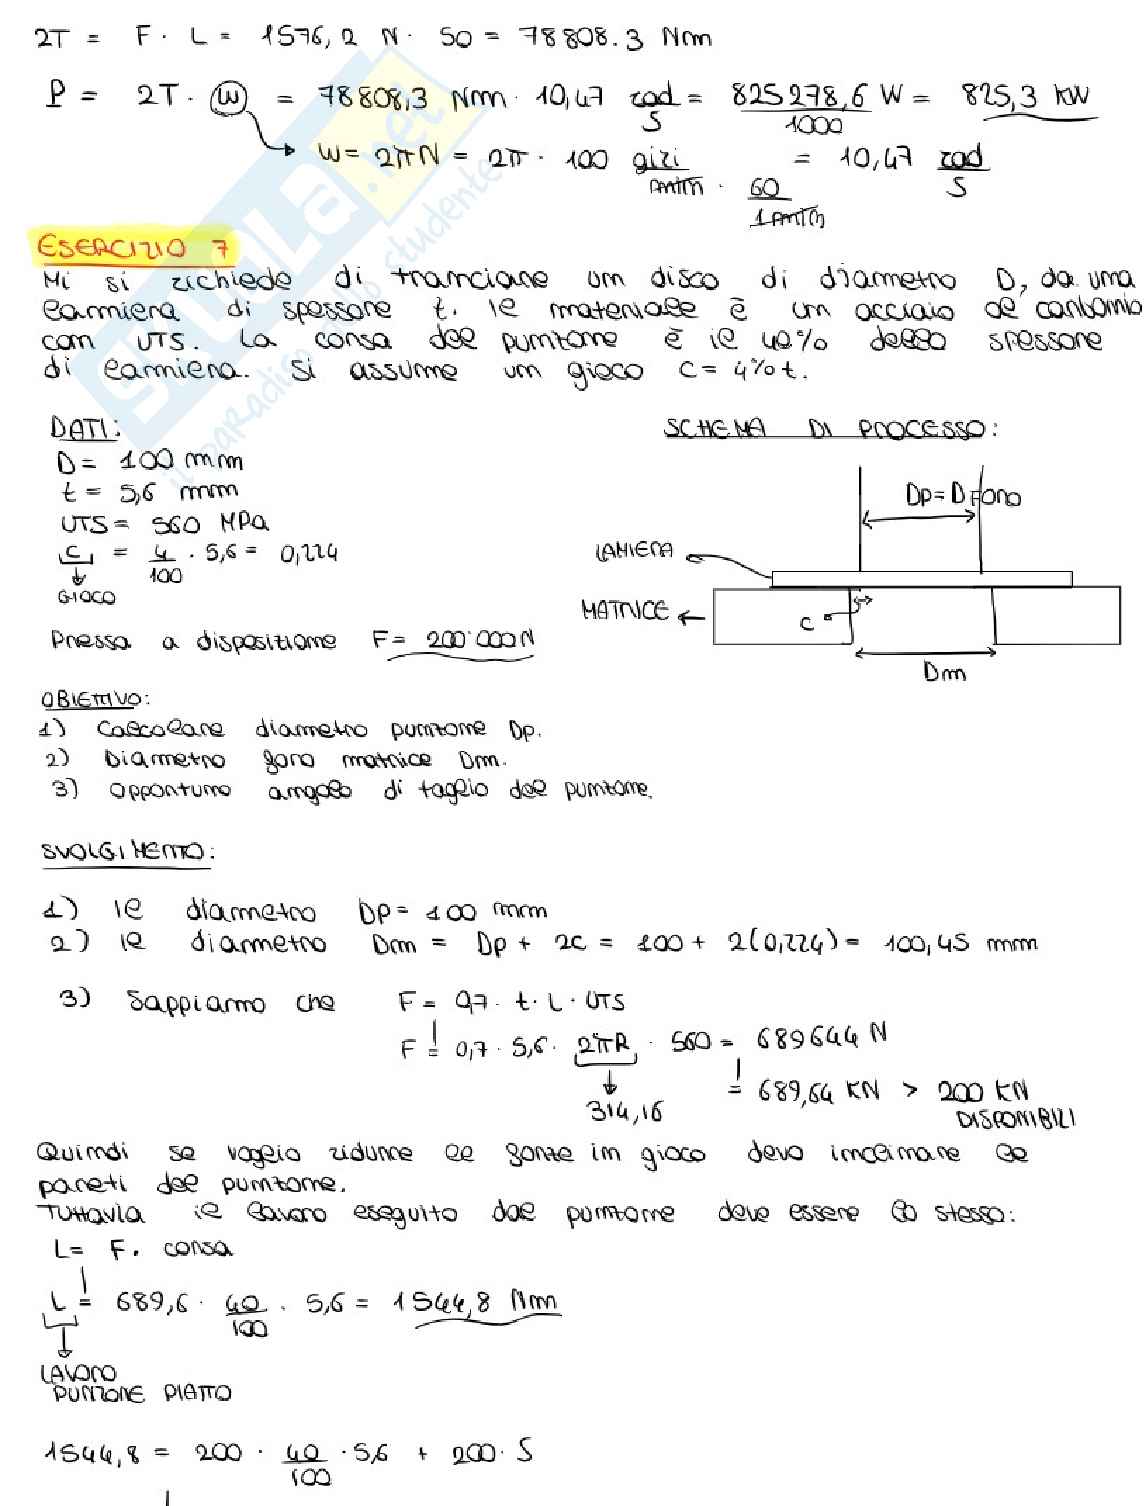 2T = F · L = 1576,2 N · 50 = 78808.3 Nm
P = 2T · w = 78808,3 Nm · 10,47 rad/s = 825278,6/1000 W = 825,3 kW
w = 2πN = 2π · 100 giri/min · 60/1 min = 10,47 rad/s
ESERCIZIO 7
Mi si richiede di tranciare un disco di diametro D, da una
lamiera di spessore t. Il materiale è un acciaio al carbonio
con UTS. La corsa del punzone è il 40% dello spessore
di lamiera. Si assume un gioco c = 4% t.
DATI:
D = 100 mm
t = 5,6 mm
UTS = 560 MPa
c = 4/100 · 5,6 = 0,224
GIOCO
Pressa a disposizione F = 200'000 N
SCHEMA DI PROCESSO:
Dp = D foro
LAMIERA
MATRICE
c
Dm
OBIETTIVO:
1) Calcolare diametro punzone Dp.
2) Diametro foro matrice Dm.
3) Opportuno angolo di taglio del punzone.
SVOLGIMENTO:
1) Il diametro Dp = 100 mm
2) Il diametro Dm = Dp + 2c = 100 + 2(0,224) = 100,45 mm
3) Sappiamo che F = 0,7 · t · L · UTS
F = 0,7 · 5,6 · 2πR · 560 = 689644 N
314,16
= 689,64 KN > 200 KN
DISPONIBILI
Quindi se voglio ridurre le forze in gioco devo inclinare le
pareti del punzone.
Tuttavia il lavoro eseguito dal punzone deve essere lo stesso:
L = F · corsa
L = 689,6 · 40/100 · 5,6 = 1544,8 Nm
LAVORO
PUNZONE PIATTO
1544,8 = 200 · 40/100 · 5,6 + 200 · S
SKUOLA.net
il paradiso dello studente